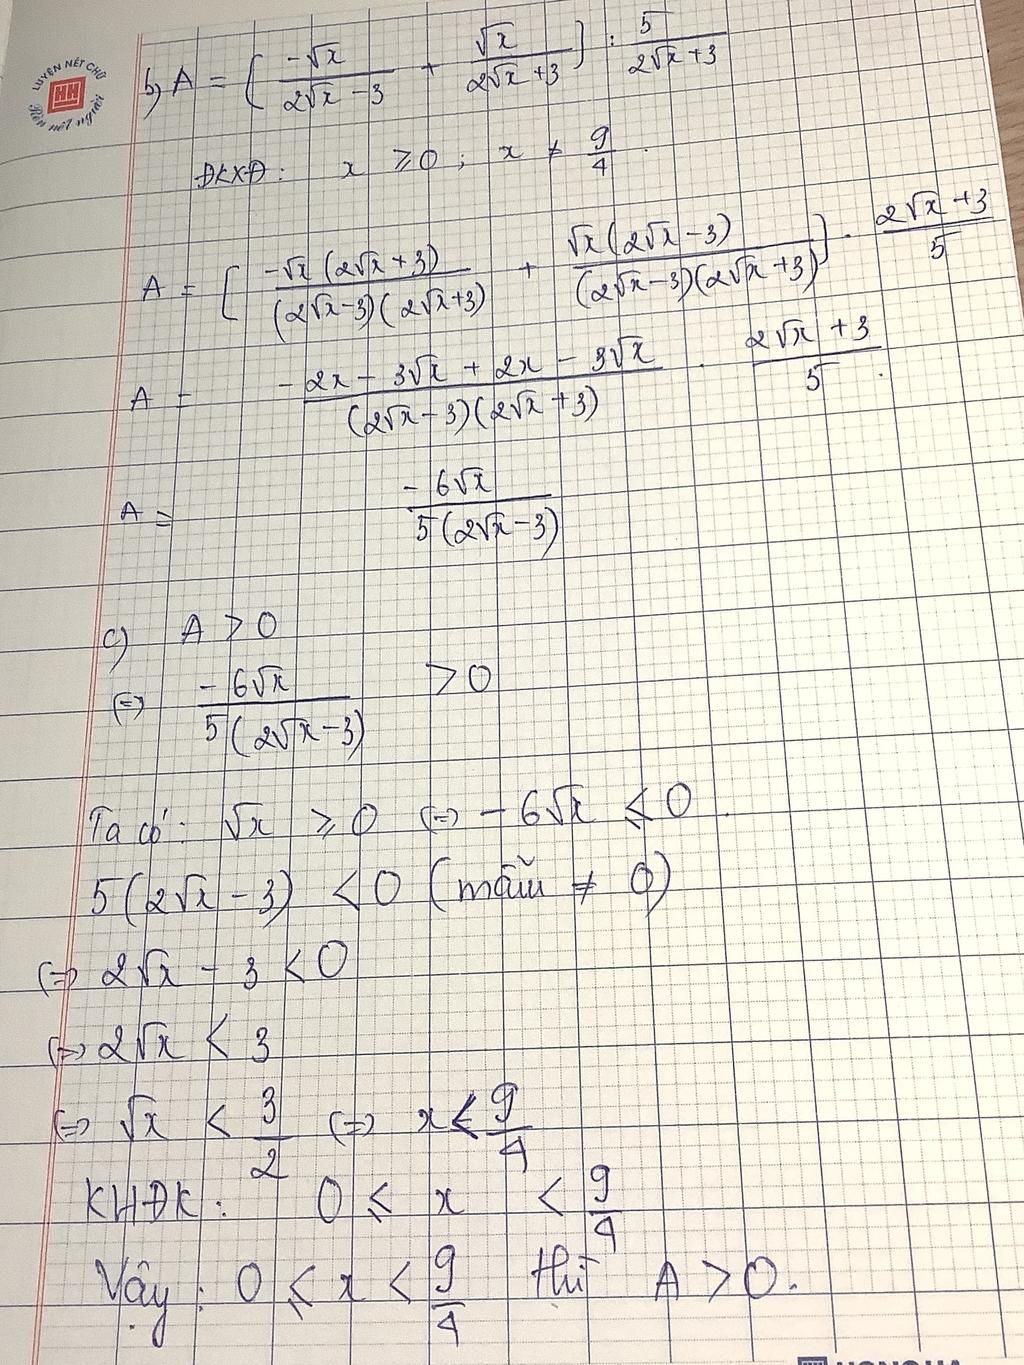 LUYỆN NÉT CHỮ
HH
Rèn nết người
b, A = [ -√x / (2√x - 3) + √x / (2√x + 3) ] : 5 / (2√x + 3)
ĐKXĐ: x ≥ 0 ; x ≠ 9/4
A = [ -√x (2√x + 3) / (2√x - 3)(2√x + 3) + √x (2√x - 3) / (2√x - 3)(2√x + 3) ] . (2√x + 3) / 5
A = (-2x - 3√x + 2x - 3√x) / (2√x - 3)(2√x + 3) . (2√x + 3) / 5
A = -6√x / 5(2√x - 3)
c) A > 0
(=) -6√x / 5(2√x - 3) > 0
Ta có: √x ≥ 0 (=) -6√x ≤ 0.
5(2√x - 3) < 0 (mẫu ≠ 0)
(=) 2√x - 3 < 0
(=) 2√x < 3
(=) √x < 3/2 (=) x < 9/4
KHĐK: 0 ≤ x < 9/4
Vậy: 0 ≤ x < 9/4 thì A > 0.
HONG HA